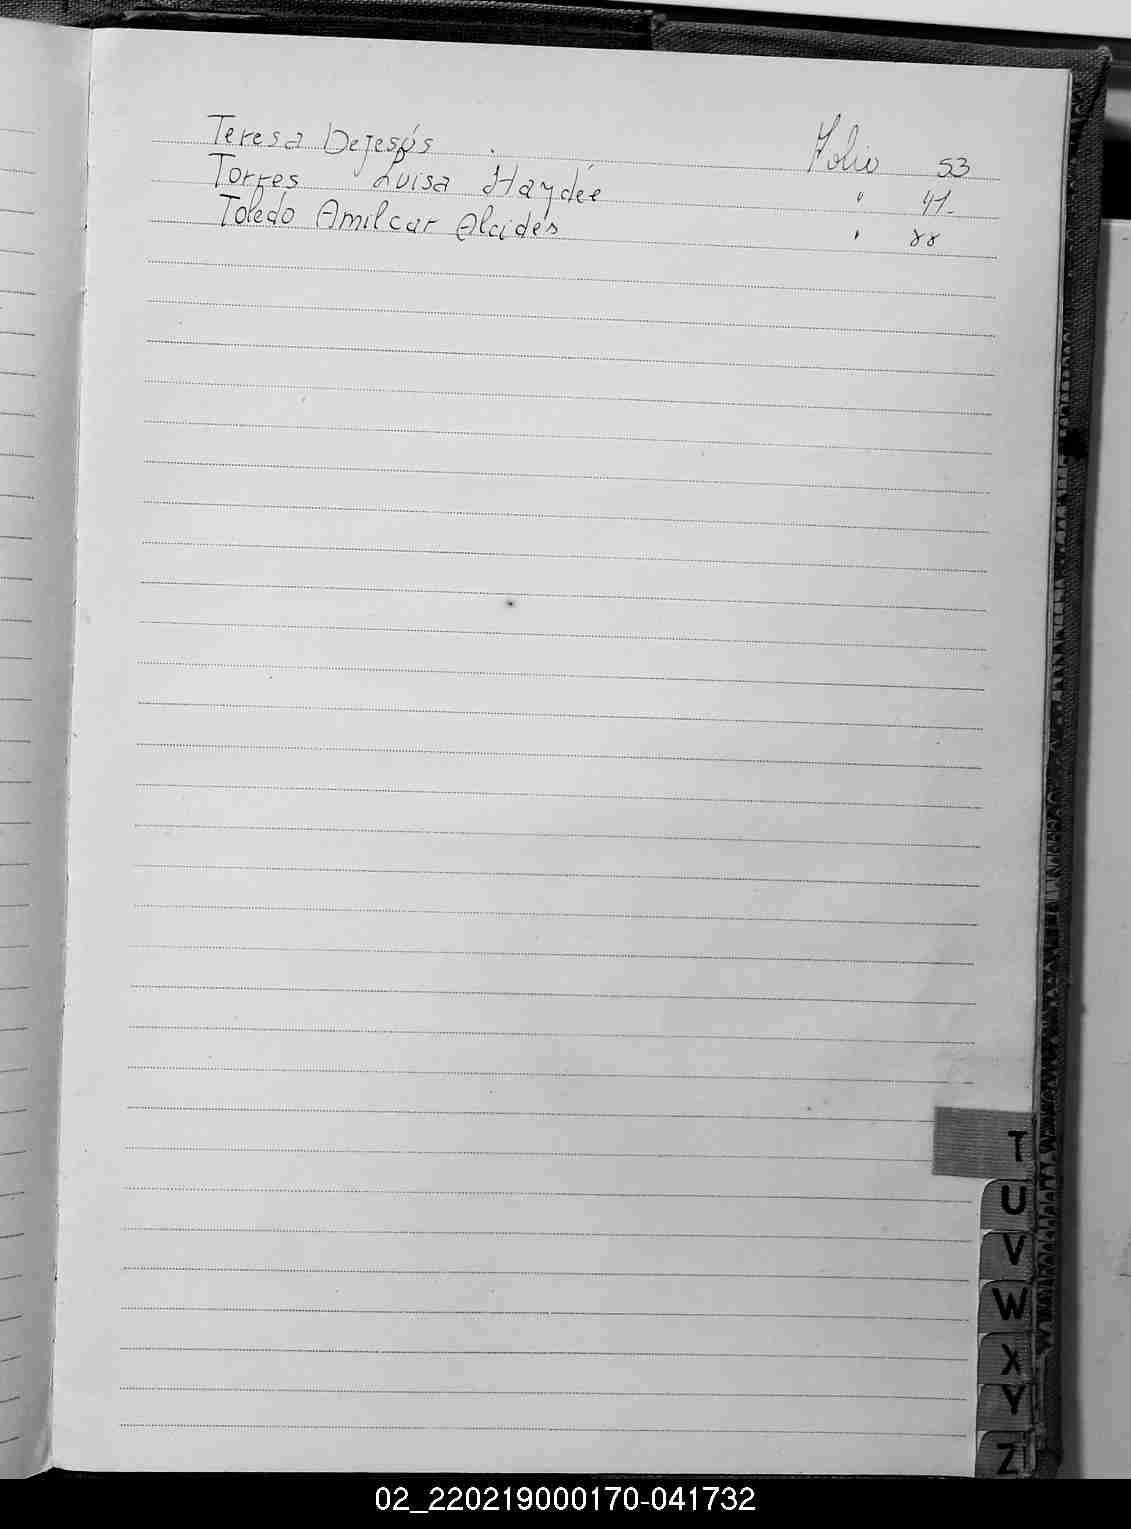 Teresa Dejesús Folio 53
Torres Luisa Haydée " 41-
Toledo Amilcar Alcides " 88
T
U
V
W
X
Y
Z
02_220219000170-041732